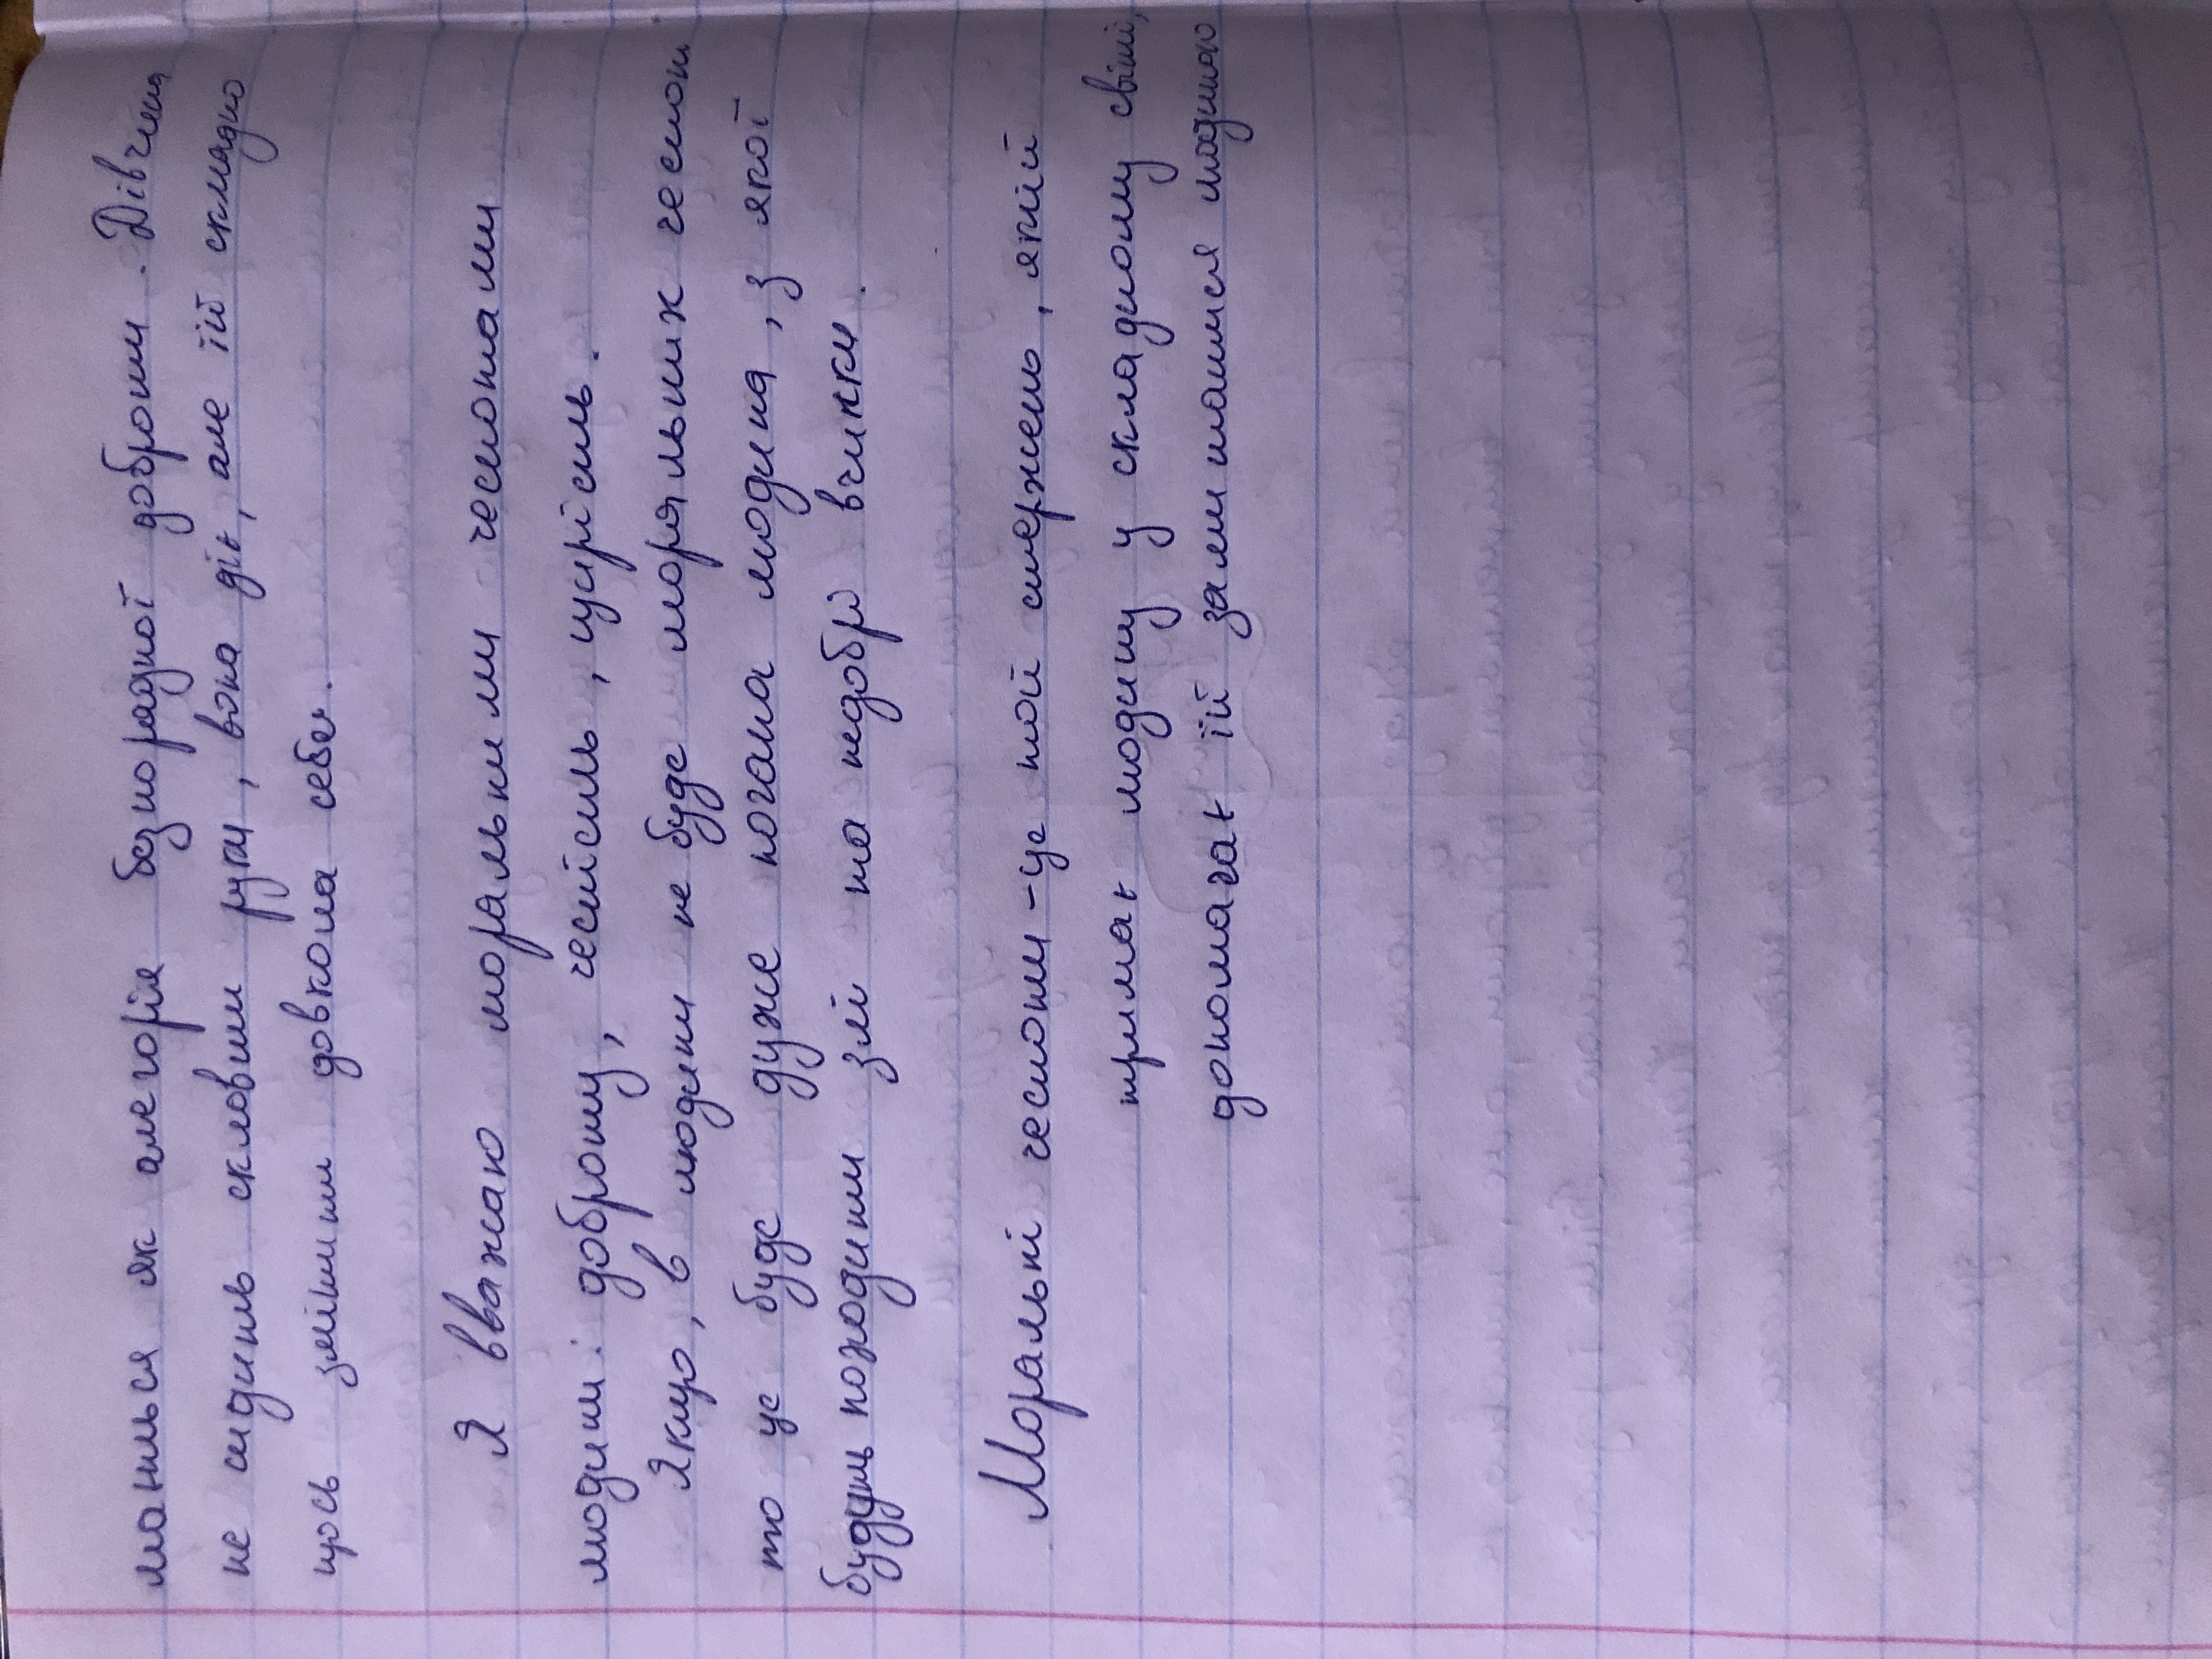 мониься як алегорія безпорадної доброти. Дівчина
не сидить склавши руки, вона діє, але їй складно
щось змінити довкола себе.
Я вважаю моральними чеснотами
людини: доброту, чесність, щирість.
Якщо, в людини не буде моральних чеснот
то це буде дуже погана людина, з якої
будуть походити злі та недобрі вчинки.
Моральні чесноти - це той стержень, який
тримає людину у складному світі,
допомагає їй залишатися людиною